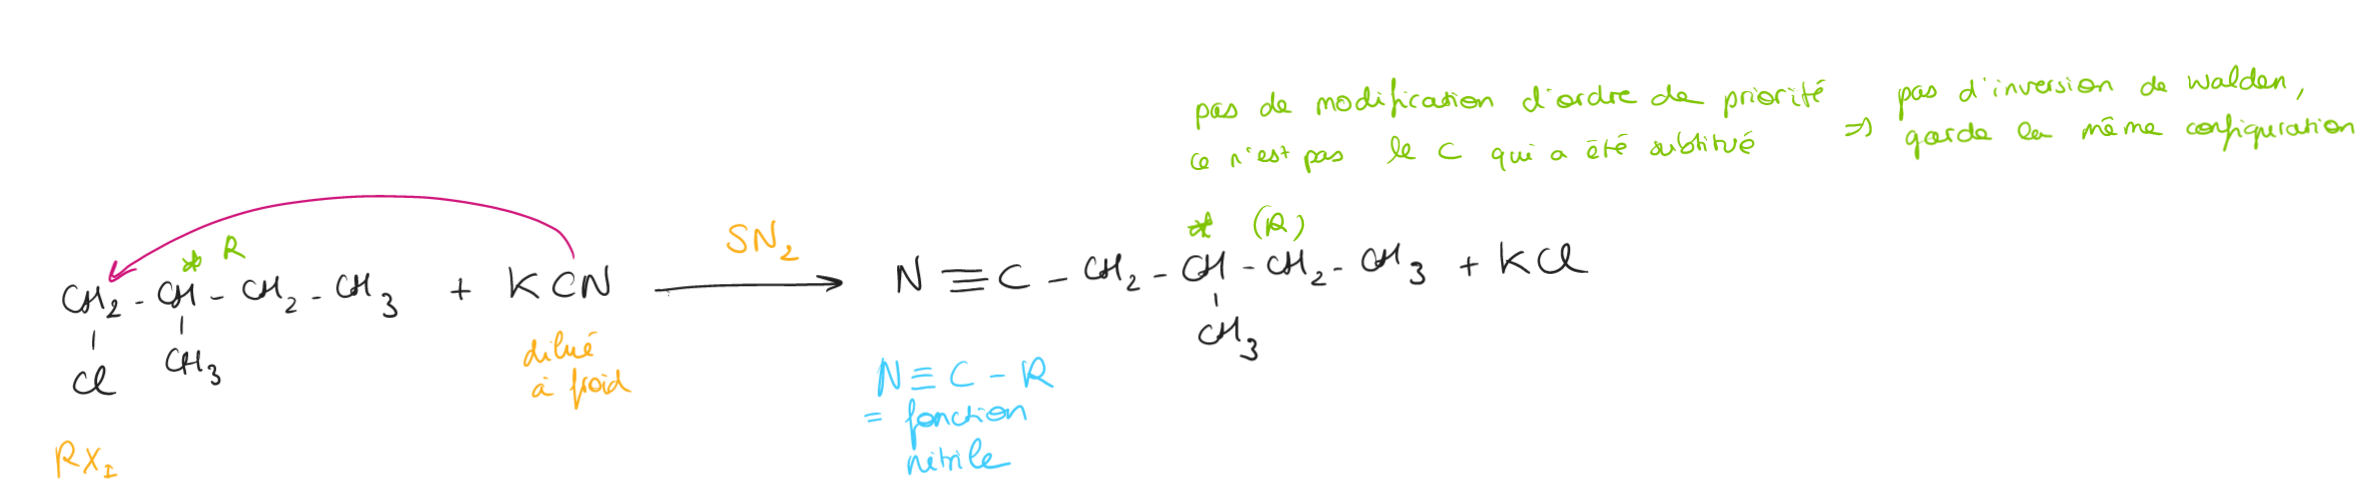 pas de modification d'ordre de priorité
ce n'est pas le C qui a été substitué
⇒ pas d'inversion de Walden,
garde la même configuration
* R
CH2 - CH - CH2 - CH3 + KCN
Cl
CH3
dilué
à froid
RX I
SN2
* (R)
N ≡ C - CH2 - CH - CH2 - CH3 + KCl
CH3
N ≡ C - R
= fonction
nitrile